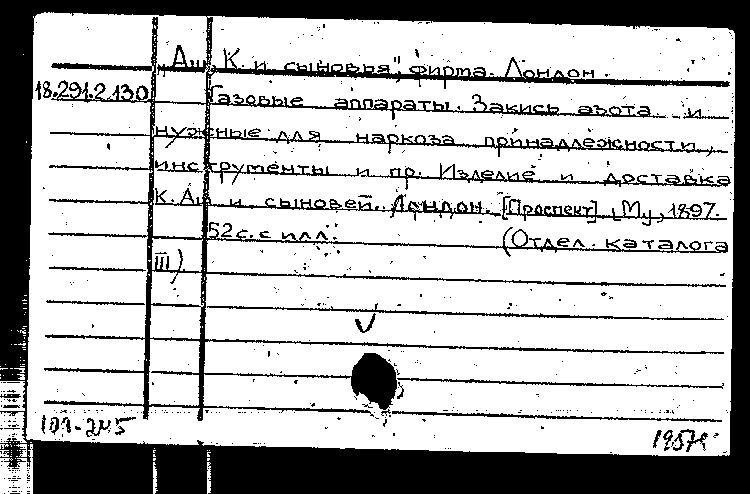 „Аш, К. и сыновья", фирма. Лондон.
18.291.2.130 Газовые аппараты. Закись азота и
нужные для наркоза принадлежности,
инструменты и пр. Изделие и доставка
К. Аш и сыновей. Лондон. [Проспект]. 1897.
52 с. с илл. (Отдел. каталога
III)
1957г.